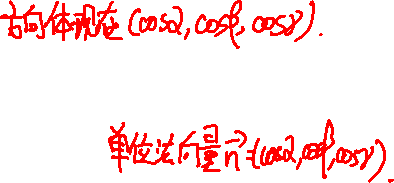 方向体现在(cosα,cosβ,cosγ).
单位法向量n⃗=(cosα,cosβ,cosγ).